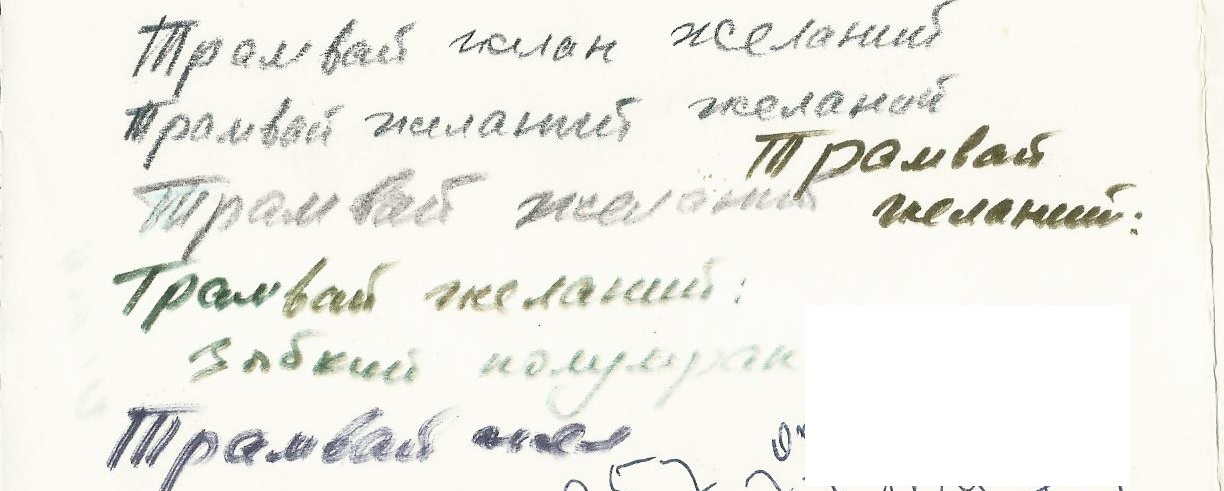 Трамвай желан желаний
Трамвай желаний желаний
Трамвай
Трамвай желаний
желаний:
Трамвай желаний:
Зыбкий полумрак
Трамвай жел